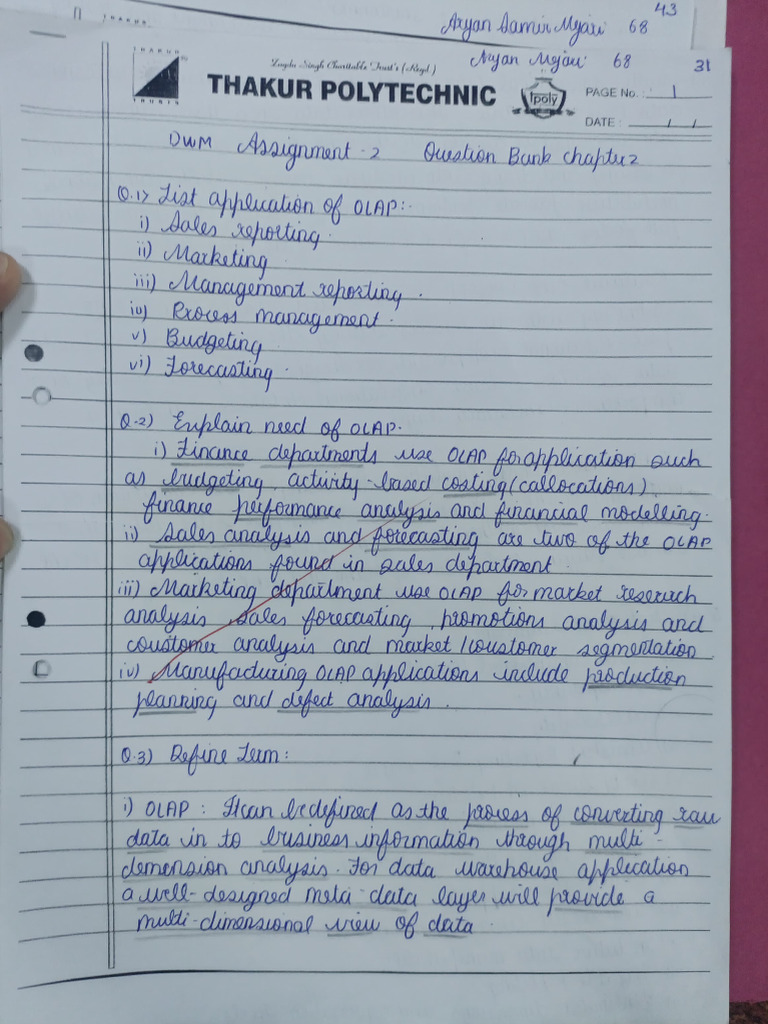 43
Aryan Samir Mejari 68
THAKUR
Aryan Mejari 68 31
Zagdu Singh Charitable Trust's (Regd.)
THAKUR POLYTECHNIC
tpoly
PAGE No. : 1
DATE : / /
DWM Assignment - 2 Question Bank chapter 2
Q.1) List application of OLAP:-
i) Sales reporting.
ii) Marketing
iii) Management reporting.
iv) Process management.
v) Budgeting
vi) Forecasting.
Q.2) Explain need of OLAP.
i) Finance departments use OLAP for application such
as budgeting, activity-based costing (callocations)
finance performance analysis and financial modelling.
ii) Sales analysis and forecasting are two of the OLAP
applications found in sales department.
iii) Marketing department use OLAP for market reserach
analysis, sales forecasting, promotions analysis and
coustomer analysis and market / coustomer segmentation.
iv) Manufacturing OLAP applications include production
planning and defect analysis.
Q.3) Define Term:
i) OLAP : It can be defined as the process of converting raw
data in to business information through multi-
demension analysis. For data warehouse application
a well-designed meta data layer will provide a
multi-dimensional view of data.